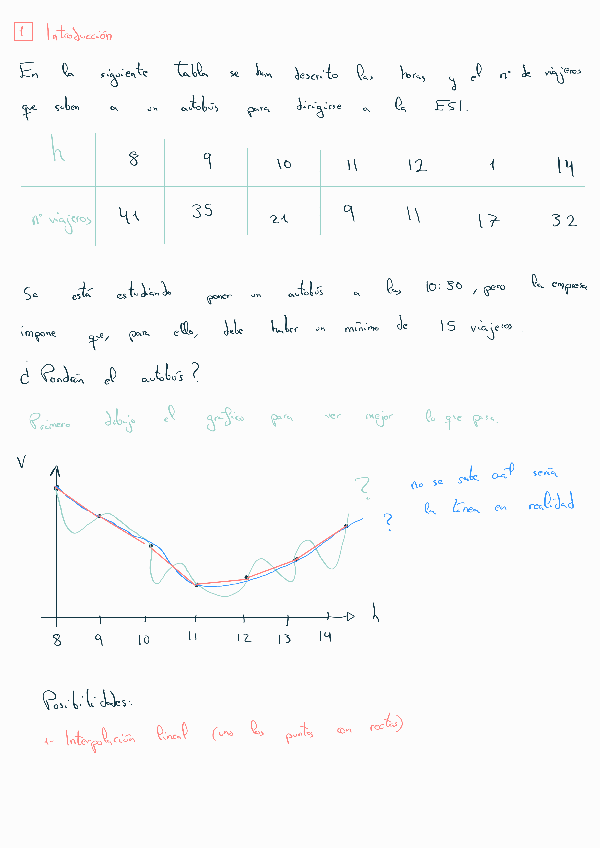 1 Introducción
En la siguiente tabla se han descrito las horas y el nº de viajeros
que suben a un autobús para dirigirse a la ESI.
h 8 9 10 11 12 1 14
nº viajeros 41 35 21 9 11 17 32
Se está estudiando poner un autobús a las 10:30, pero la empresa
impone que, para ello, debe haber un mínimo de 15 viajeros
¿Pondrán el autobús?
Primero dibujo el gráfico para ver mejor lo que pasa.
V
?
?
no se sabe cuál sería
la línea en realidad
h
8 9 10 11 12 13 14
Posibilidades:
1- Interpolación lineal (uno los puntos con rectas)